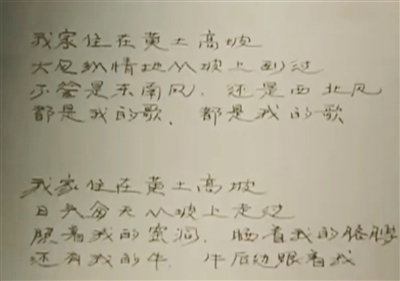 我家住在黄土高坡
大风纵情地从坡上刮过
不管是东南风，还是西北风
都是我的歌、都是我的歌
我家住在黄土高坡
日头每天从坡上走过
照着我的窑洞、晒着我的胳膊
还有我的牛、牛后边跟着我